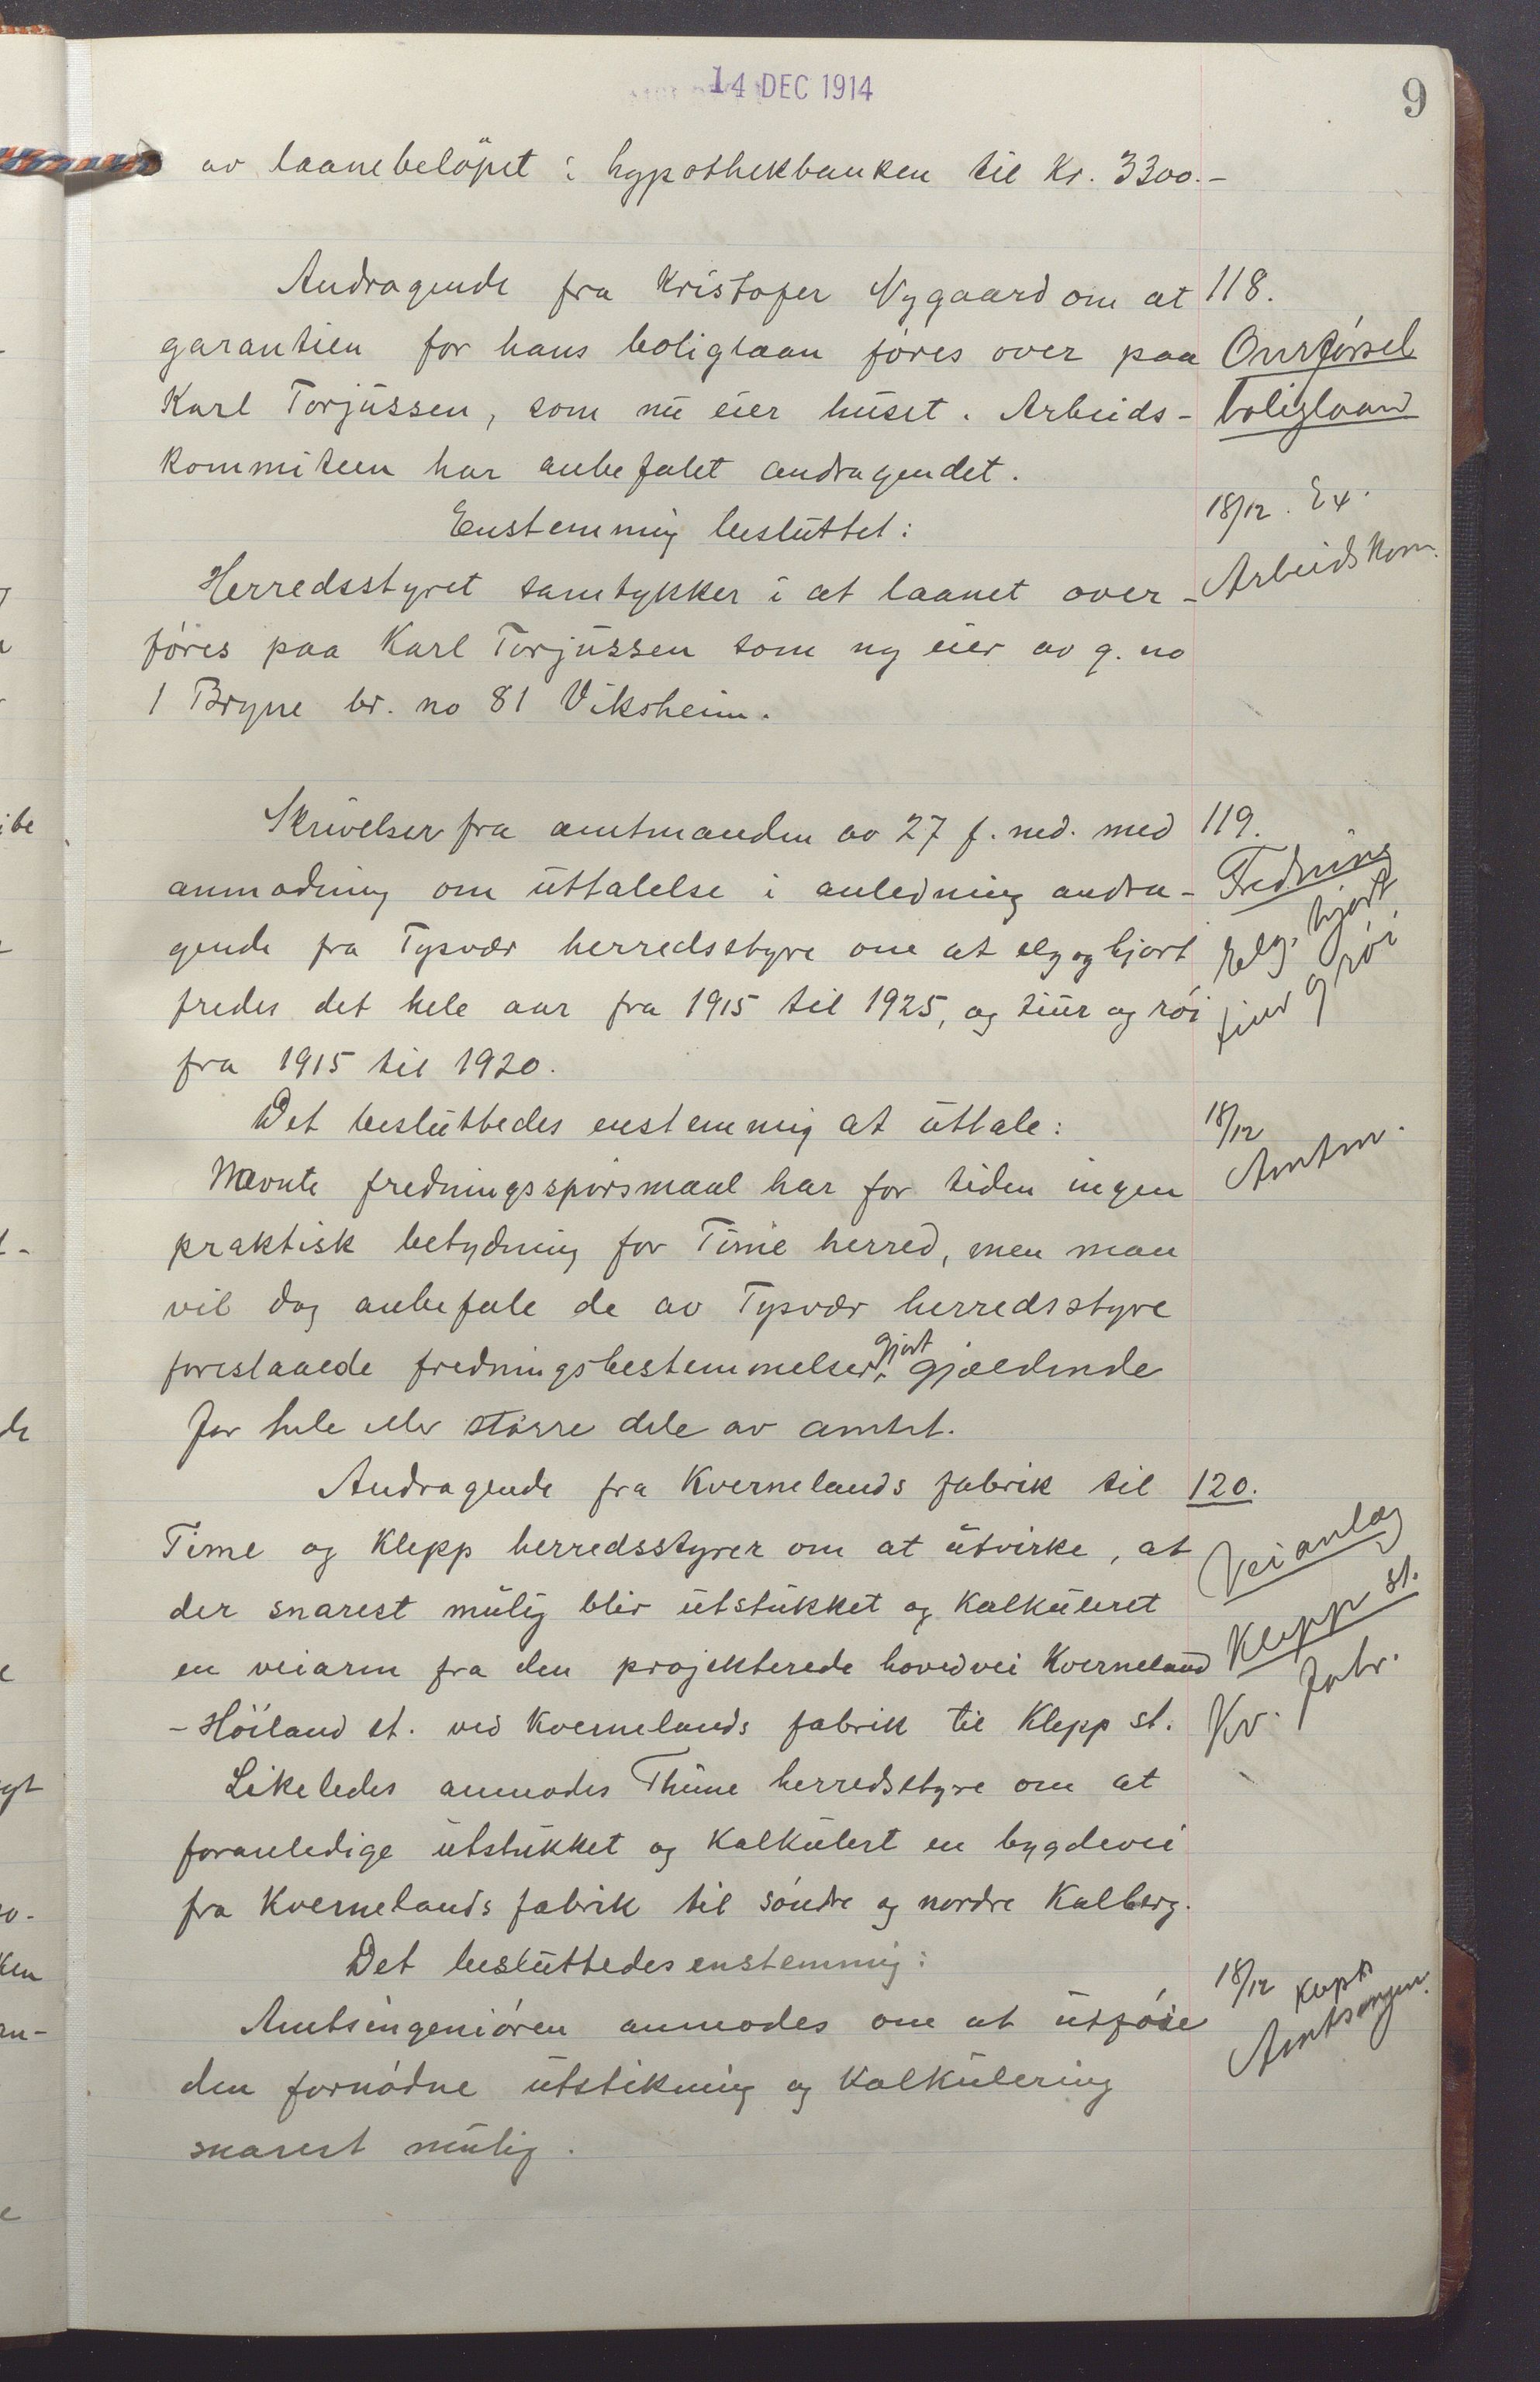 14 DEC 1914
9
av laanebeløpet i hypothekbanken til Kr. 3300.-
Andragende fra Kristofer Nygaard om at
118.
garantien for hans boliglaan føres over paa
Overførsel
Karl Torjussen, som nu eier huset. Arbeids-
boliglaan
kommiteen har anbefalet andragendet.
18/12. Ex.
Enstemmig besluttet:
Arbeidskom.
Herredsstyret samtykker i at laanet over-
føres paa Karl Torjussen som ny eier av g. no
1 Bryne br. no 81 Viksheim.
Skrivelser fra amtmanden av 27 f. md. med
119.
anmodning om uttalelse i anledning andra-
Fredning
gende fra Tysvær herredsstyre om at elg og hjort
elg, hjort
fredes det hele aar fra 1915 til 1925, og tiur og røi
tiur og røi
fra 1915 til 1920.
Det besluttedes enstemmig at uttale:
18/12
Nævnte fredningsspørsmaal har for tiden ingen
Amtm.
praktisk betydning for Time herred, men man
vil dog anbefale de av Tysvær herredsstyre
gjort
foreslaaede fredningsbestemmelser gjældende
for hele eller større dele av amtet.
Andragende fra Kvernelands fabrik til
120.
Time og Klepp herredsstyrer om at utvirke, at
Veianlæg
der snarest mulig blir utstukket og kalkuleret
Klepp st.
en veiarm fra den projekterede hovedvei Kverneland
Kv. fabr.
-Höiland st. ved Kvernelands fabrik til Klepp st.
Likeledes anmodes Thime herredsstyre om at
foranledige utstukket og kalkulert en bygdevei
fra Kvernelands fabrik til søndre og nordre Kalberg.
Det besluttedes enstemmig:
18/12
Amtsingeniøren anmodes om at utføre
Amtsingen.
den fornødne utstikning og kalkulering
snarest mulig.